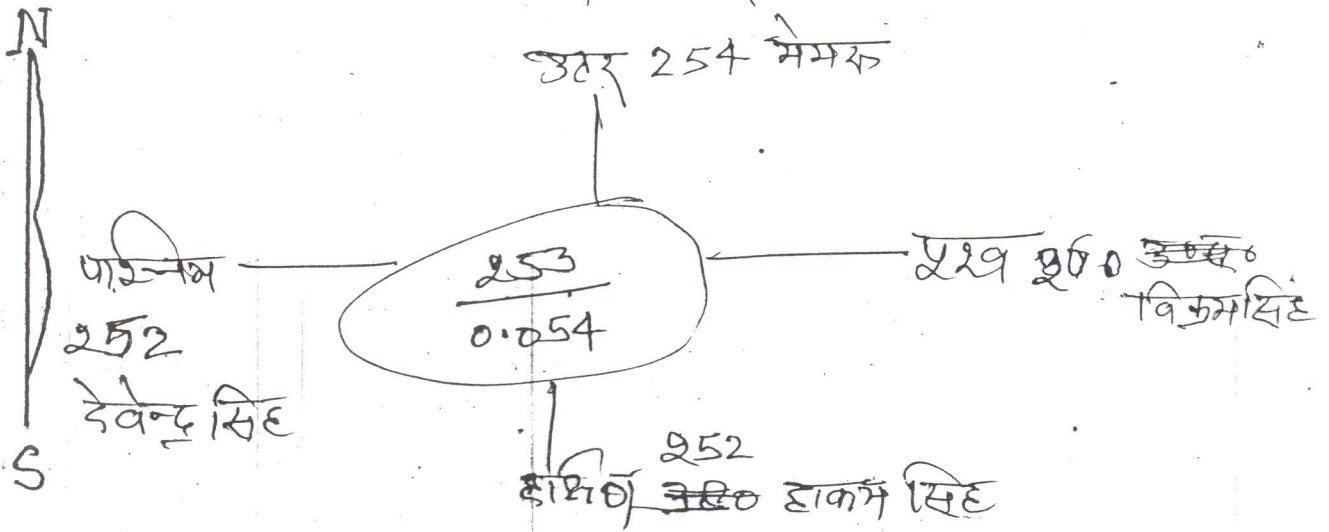 N
उतर 254 मेमरू
पाश्चिम
252
देवेन्द्र सिंह
253
0.054
पुरव 360
विक्रमसिंह
S
252
दाक्षिण हाकम सिंह